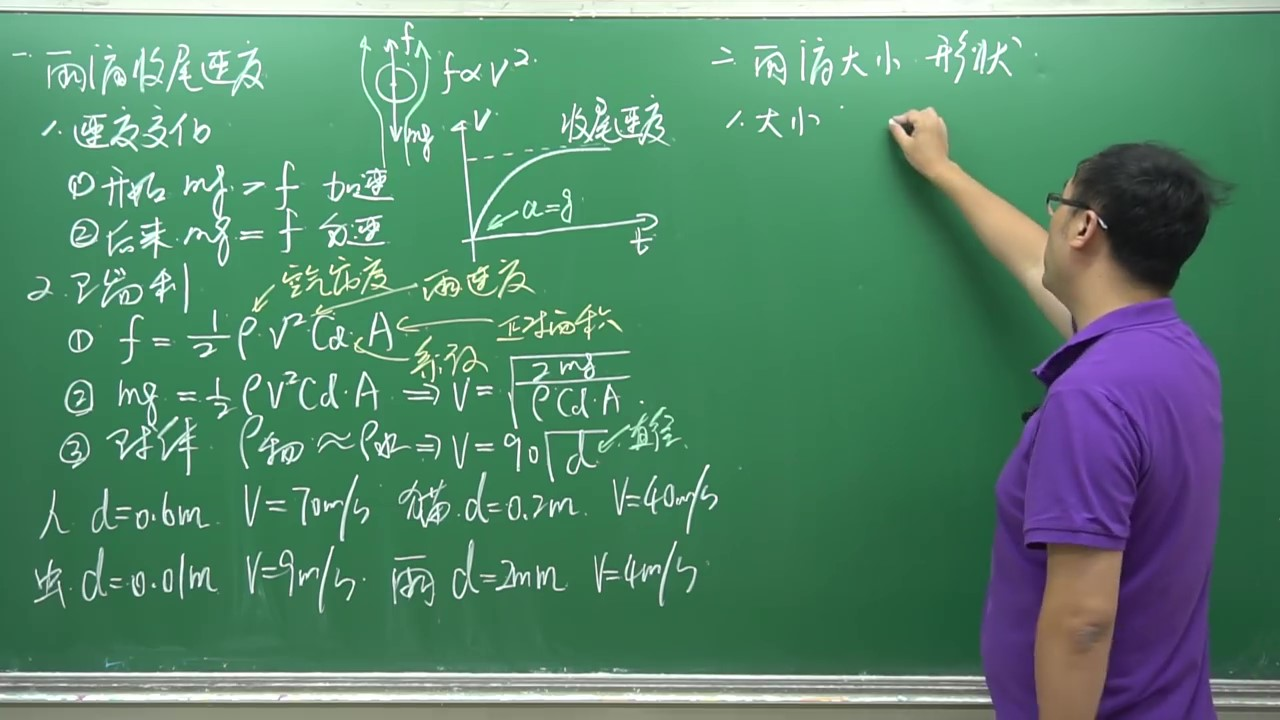 一 雨滴收尾速度
1. 速度变化
① 开始 mg > f 加速
② 后来 mg = f 匀速
f
mg
f∝v²
v
收尾速度
a=g
t
2. 卫端利
空气密度
雨速度
① f = 1/2 ρ v² Cd·A
正对面积
系数
② mg = 1/2 ρv²Cd·A ⇒ v = √(2mg/ρCd·A)
③ 球体 ρ物 ≈ ρ水 ⇒ v = 90√d
直径
人 d=0.6m v=70m/s 猫 d=0.2m v=40m/s
虫 d=0.01m v=9m/s 雨 d=2mm v=4m/s
二 雨滴大小 形状
1. 大小